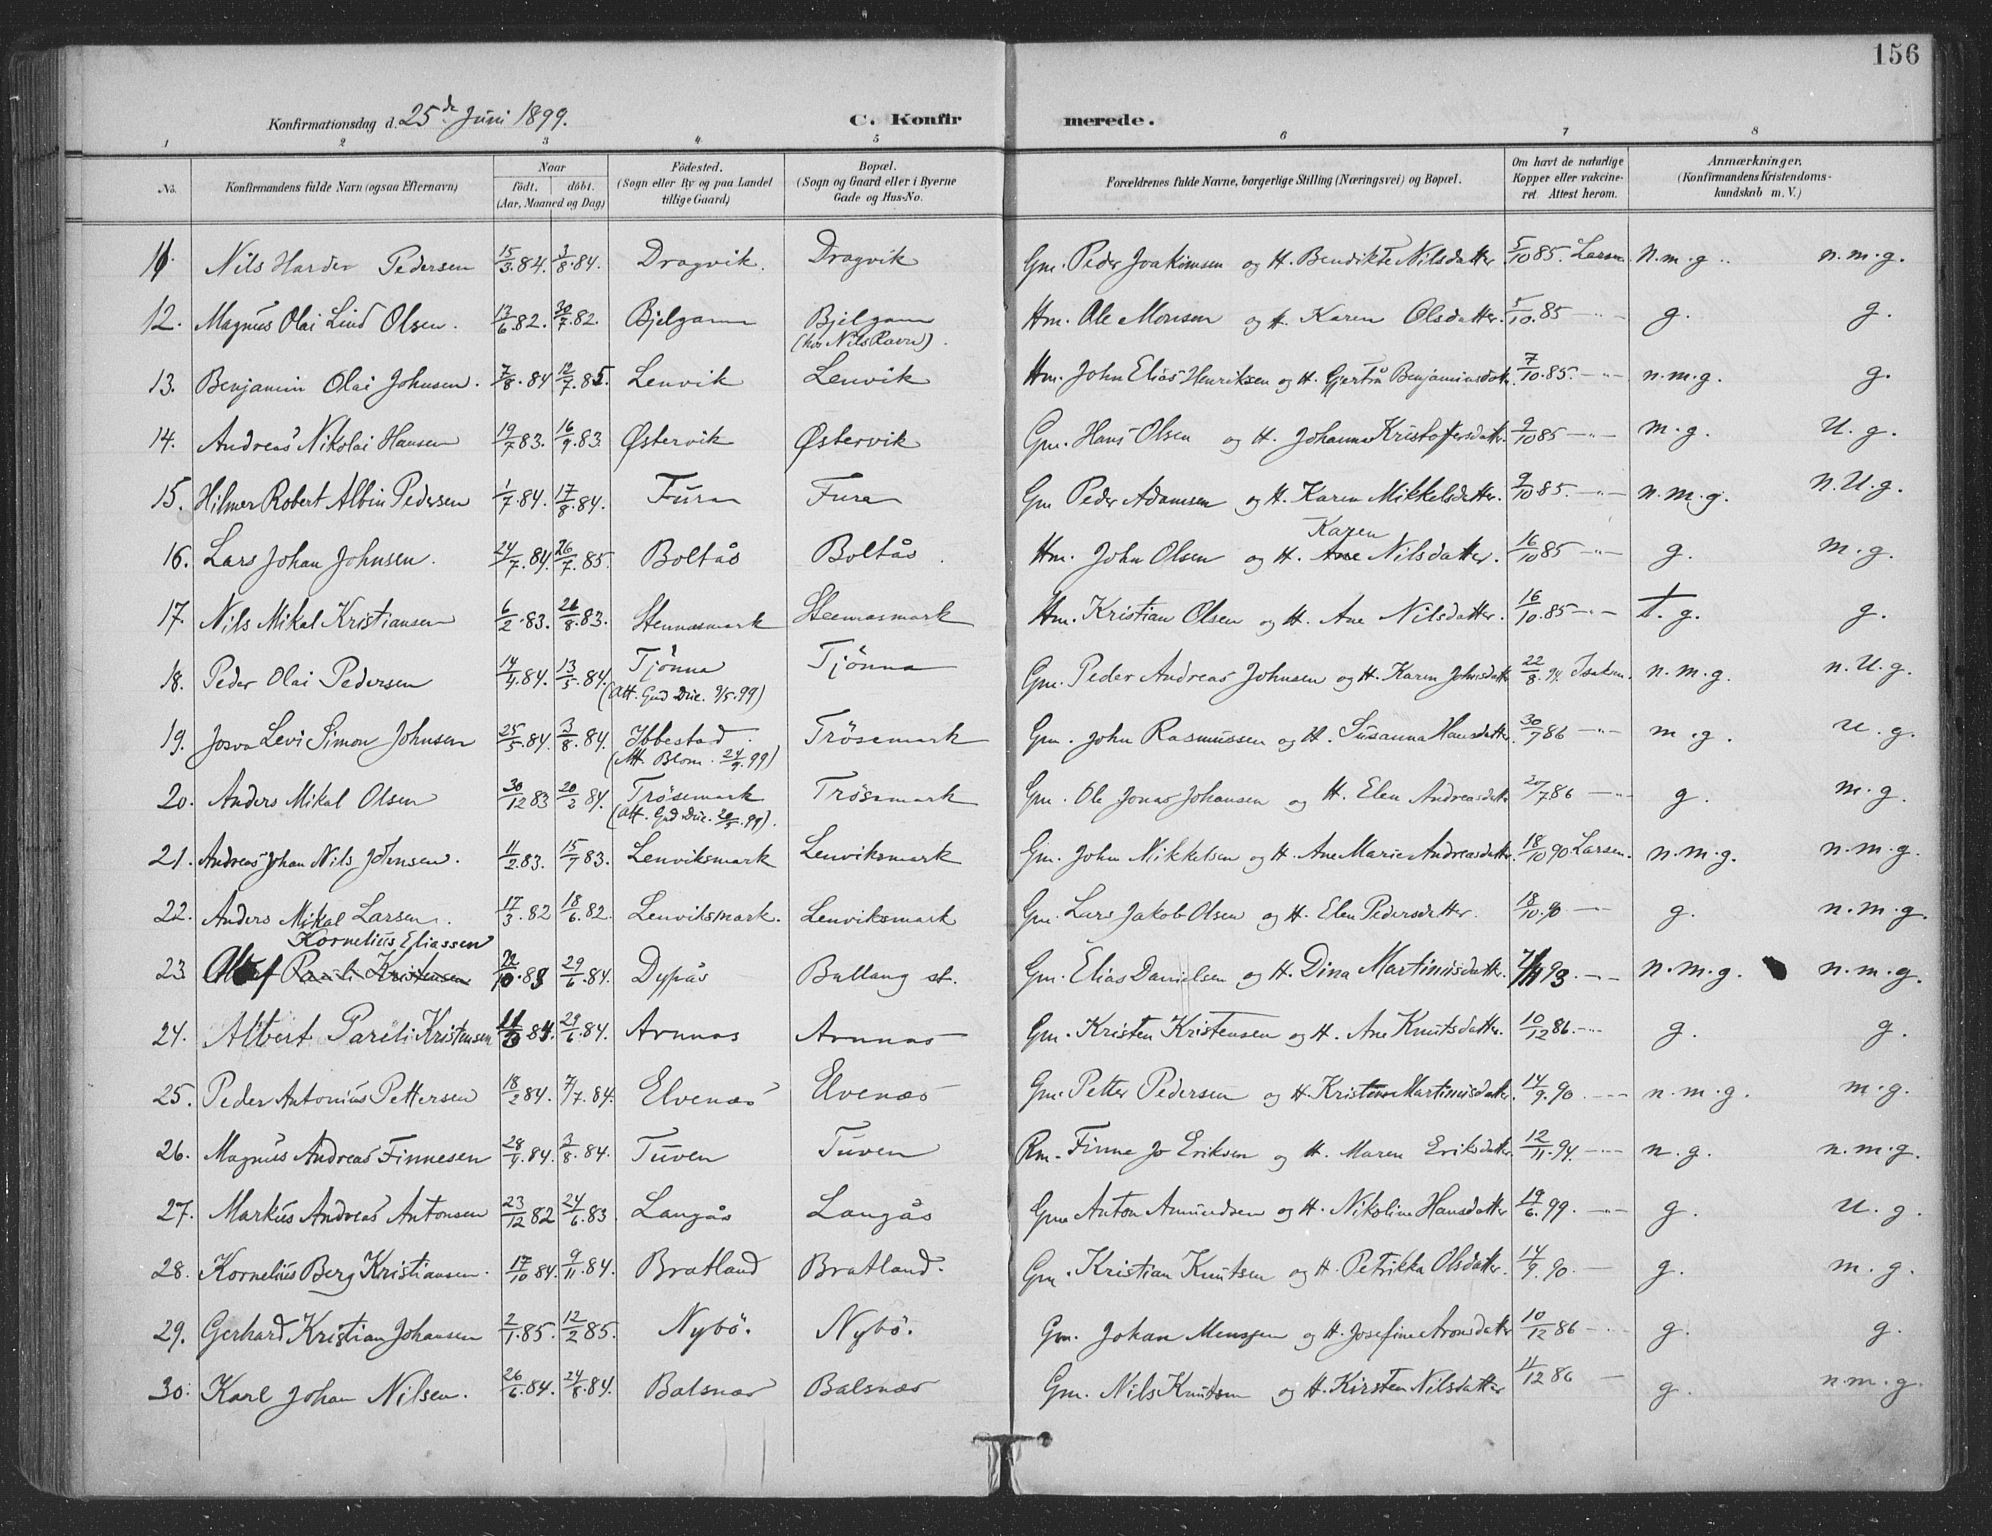 156
Konfirmationsdag d. 25de Juni 1899. C. Konfirmerede.
1 2 3 4 5 6 7 8
No. Konfirmandens fulde Navn (ogsaa Efternavn) Naar født. døbt. (Aar, Maaned og Dag) Födested. (Sogn eller By og paa Landet tillige Gaard) Bopæl. (Sogn og Gaard eller i Byerne Gade og Hus-No. Forældrenes fulde Navne, borgerlige Stilling (Næringsvei) og Bopæl. Om havt de naturlige Kopper eller vakcineret. Attest herom. Anmærkninger. (Konfirmandens Kristendomskundskab m. V.)
11. Nils Harder Pedersen 15/3.84. 3/8.84. Dragvik. Dragvik Gm. Peder Joakimsen og H. Bendikte Nilsdatter 5/10 85. Larsen n.m.g. n.m.g.
12. Magnus Olai Lind Olsen. 13/6.82. 30/7.82. Bjelgam Bjelgam (hos Nils Ravn). Hm. Ole Monsen og H. Karen Olsdatter. 5/10.85 -"- g. g.
13. Benjamin Olai Johnsen. 7/8.84 12/7.85. Lenvik Lenvik Hm. John Elias Henriksen og H. Gjertrå Benjaminsdatt. 7/10.85. -"- n.m.g. g.
14. Andreas Nikolai Hansen 19/7.83. 16/9.83 Østervik Østervik Gm. Hans Olsen og H. Johanna Kristoffersdatter. 9/10 85 -"- m.g. U.g.
15. Hilmer Robert Albin Pedersen 1/7.84. 17/8.84. Fura Fura Gm Peder Adamsen og H. Karen Mikkelsdatter. 9/10 85. -"- n.m.g. n.U.g.
16. Lars Johan Johnsen. 24/7.84. 26/7.85. Boltås Boltås Hm. John Olsen og H. Karen Ane Nilsdatter. 16/10 85 -"- g. m.g.
17. Nils Mikal Kristiansen 6/2.83. 26/8.83. Stennasmark Stennasmark Hm. Kristian Olsen og H. Ane Nilsdatter. 16/10.85 -"- t.g. g.
18. Peder Olai Pedersen 14/4.84. 13/5.84. Tjönna (Att. Gud Due. 9/5.99) Tjönna Gm. Peder Andreas Johnsen og H. Karen Johnsdatt 22/8.94. Isaksen. n.m.g. n.U.g.
19. Josva Levi Simon Johnsen 25/5.84. 3/8.84. Ibbestad (Att. Blom. 24/4.99) Trösemark Gm. John Rasmussen og H. Susanna Hansdatter. 30/7 86 -"- m.g. U.g.
20. Anders Mikal Olsen 30/12 83 20/2 84. Trösemark (Att. Gud Due. 20/5.99). Trösemark Gm. Ole Jonas Johansen og H. Elen Andreasdatt. 20/7 86 -"- g. m.g.
21. Andreas Johan Nils Johnsen. 11/2 83. 15/7 83. Lenviksmark Lenviksmark Gm. John Mikkelsen og H. Ane Marie Andreasdatter. 18/10 90 Larsen. n.m.g. n.m.g.
22. Anders Mikal Larsen. 17/3.82 18/6.82. Lenviksmark. Lenviksmark Gm. Lars Jakob Olsen og H. Elen Pedersdatter. 18/10.90 -"- g. n.m.g.
Kornelius Eliassen
23 Olaf Pareli Kristensen 22/10.83 29/6.84. Dypås Ballang st. Gm. Elias Danielsen og H. Dina Martinusdatter. 7/11 93. -"- n.m.g. n.m.g.
24. Albert Pareli Kristensen 84. 29/6.84. Arnnas Arnnas Gm. Kristen Kristensen og H. Ane Knutsdatter. 10/12 86. -"- g. g.
25. Peder Antonius Pettersen 18/2 84. 7/7.84. Elvenas Elvenas Gm. Petter Pedersen og H. Kristine Martinusdatter. 14/9.90. -"- n.m.g. m.g.
26. Magnus Andreas Finnesen 28/4.84. 3/8.84. Tuven Tuven Rm. Finne Jo Eriksen og H. Maren Eriksdatter. 12/11.94. -"- n.g. n.m.g.
27. Markus Andreas Antonsen 23/12 82 24/6.83. Langås Langås Gm Anton Amundsen og H. Nikoline Hansdatter 19/6.99. -"- g. U.g.
28. Kornelius Berg Kristiansen. 17/10 84. 9/11.84. Bratland Bratland. Gm. Kristian Knutsen og H. Petrikka Olsdatter. 14/9.90. - g. m.g.
29. Gerhard Kristian Johansen 2/1.85. 12/2 85. Nybö. Nybö. Gm. Johan Mensjen og H. Josefine Aronsdatter 10/12 86 -"- g. g.
30. Karl Johan Nilsen. 26/6.84. 24/8.84. Balsnas Balsnas Gm. Nils Knutsen og H. Kirsten Nilsdatter 11/12 86 - g. n.m.g.